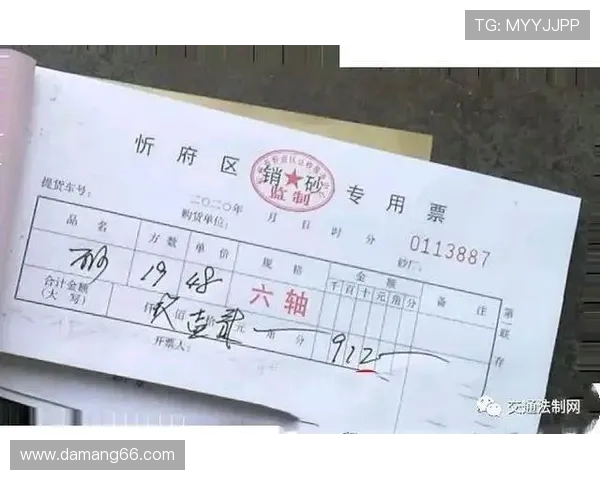 TG: MYYJJPP
忻府区销★砂专用票
监制
二〇二〇年 月 日 时 分
0113887
提货车号: 购货单位: 砂厂:
品名 方数 单价 规格 金额 备注
千百十元角分
砂 19 48 六轴
合计金额(大写) 仟玖佰壹拾贰元 角 分 912
开票人:
第一联 存
交通法制网
www.damang66.com